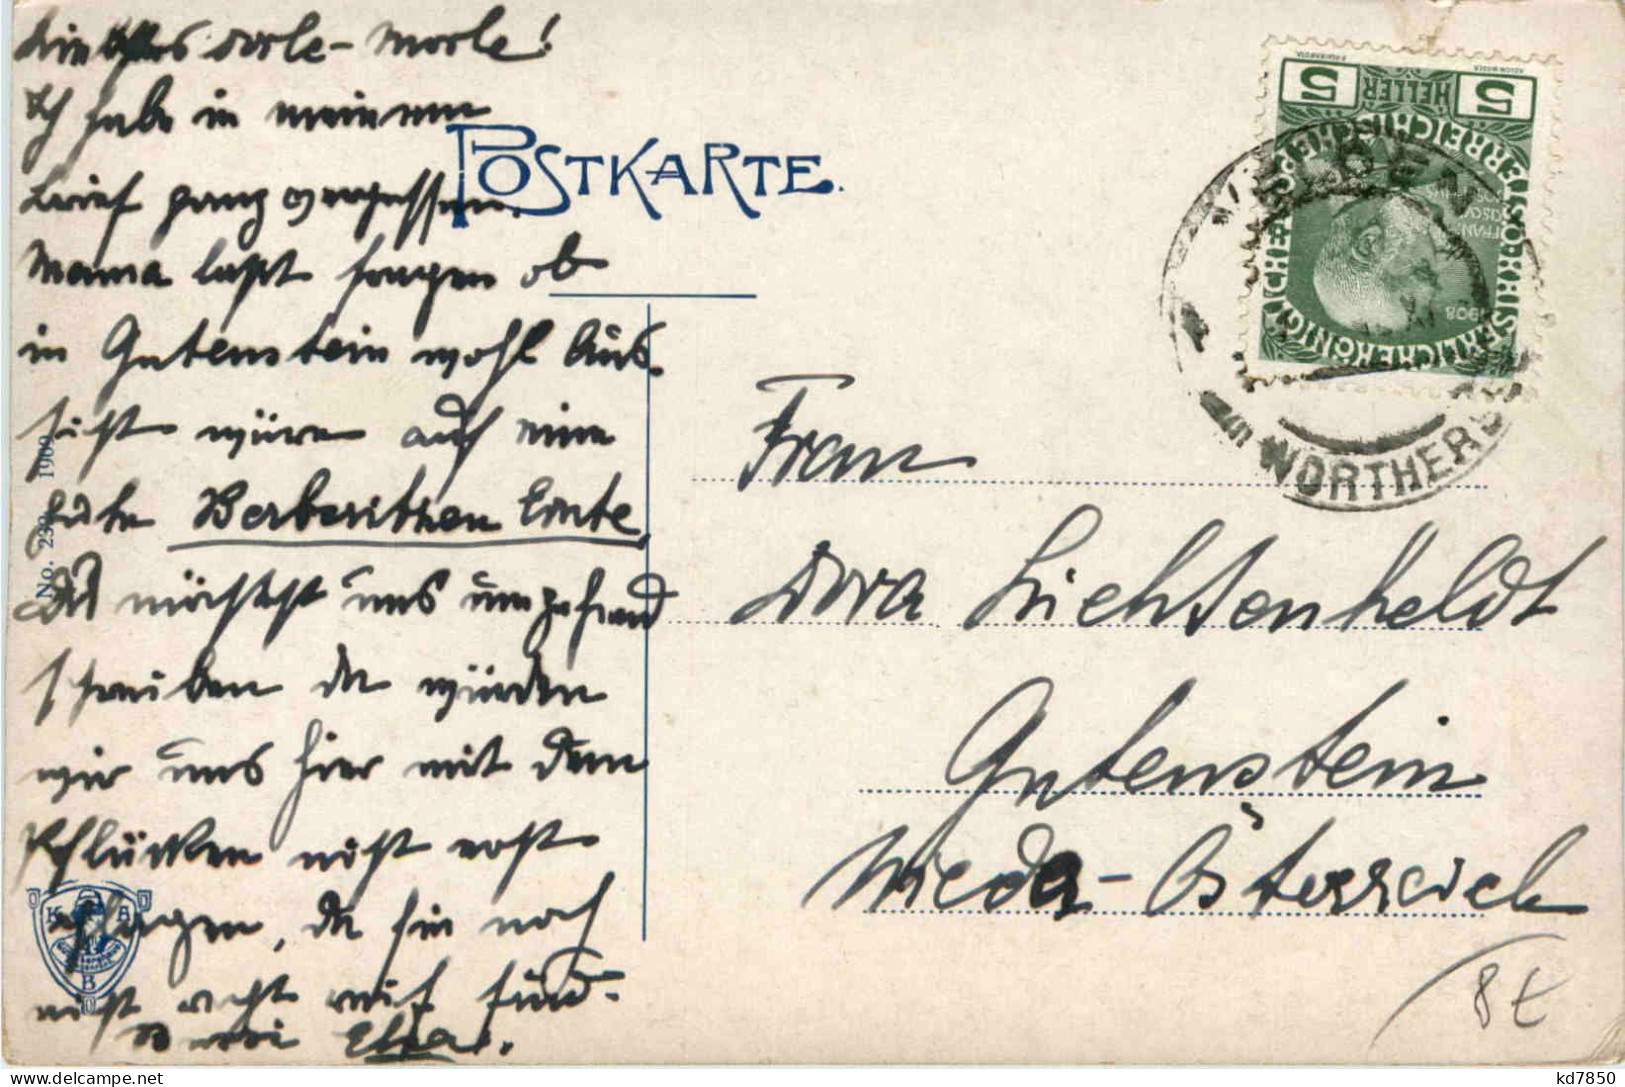 Liebes Dorle-Morle!
Ich habe in meinem
Brief ganz vergessen.
Mama läßt fragen ob
in Gutenstein wohl Aus-
sicht wäre auf eine
gute Berberitzen Ernte,
Du möchtest uns umgehend
schreiben da würden
wir uns hier mit dem
Pflücken nicht erst
plagen, da sie noch
nicht recht reif sind.
Bussi Elsa.
POSTKARTE.
No. 1909
K A B
5 HELLER 5
KAISERLICHE KÖNIGLICHE ÖSTERREICHISCHE POST
FRANZ JOSEPH
1908
VELDEN
am WÖRTHERSEE
Frau
Dora Lichtenheldt
Gutenstein
Nieder-Österreich
8€
kd7850